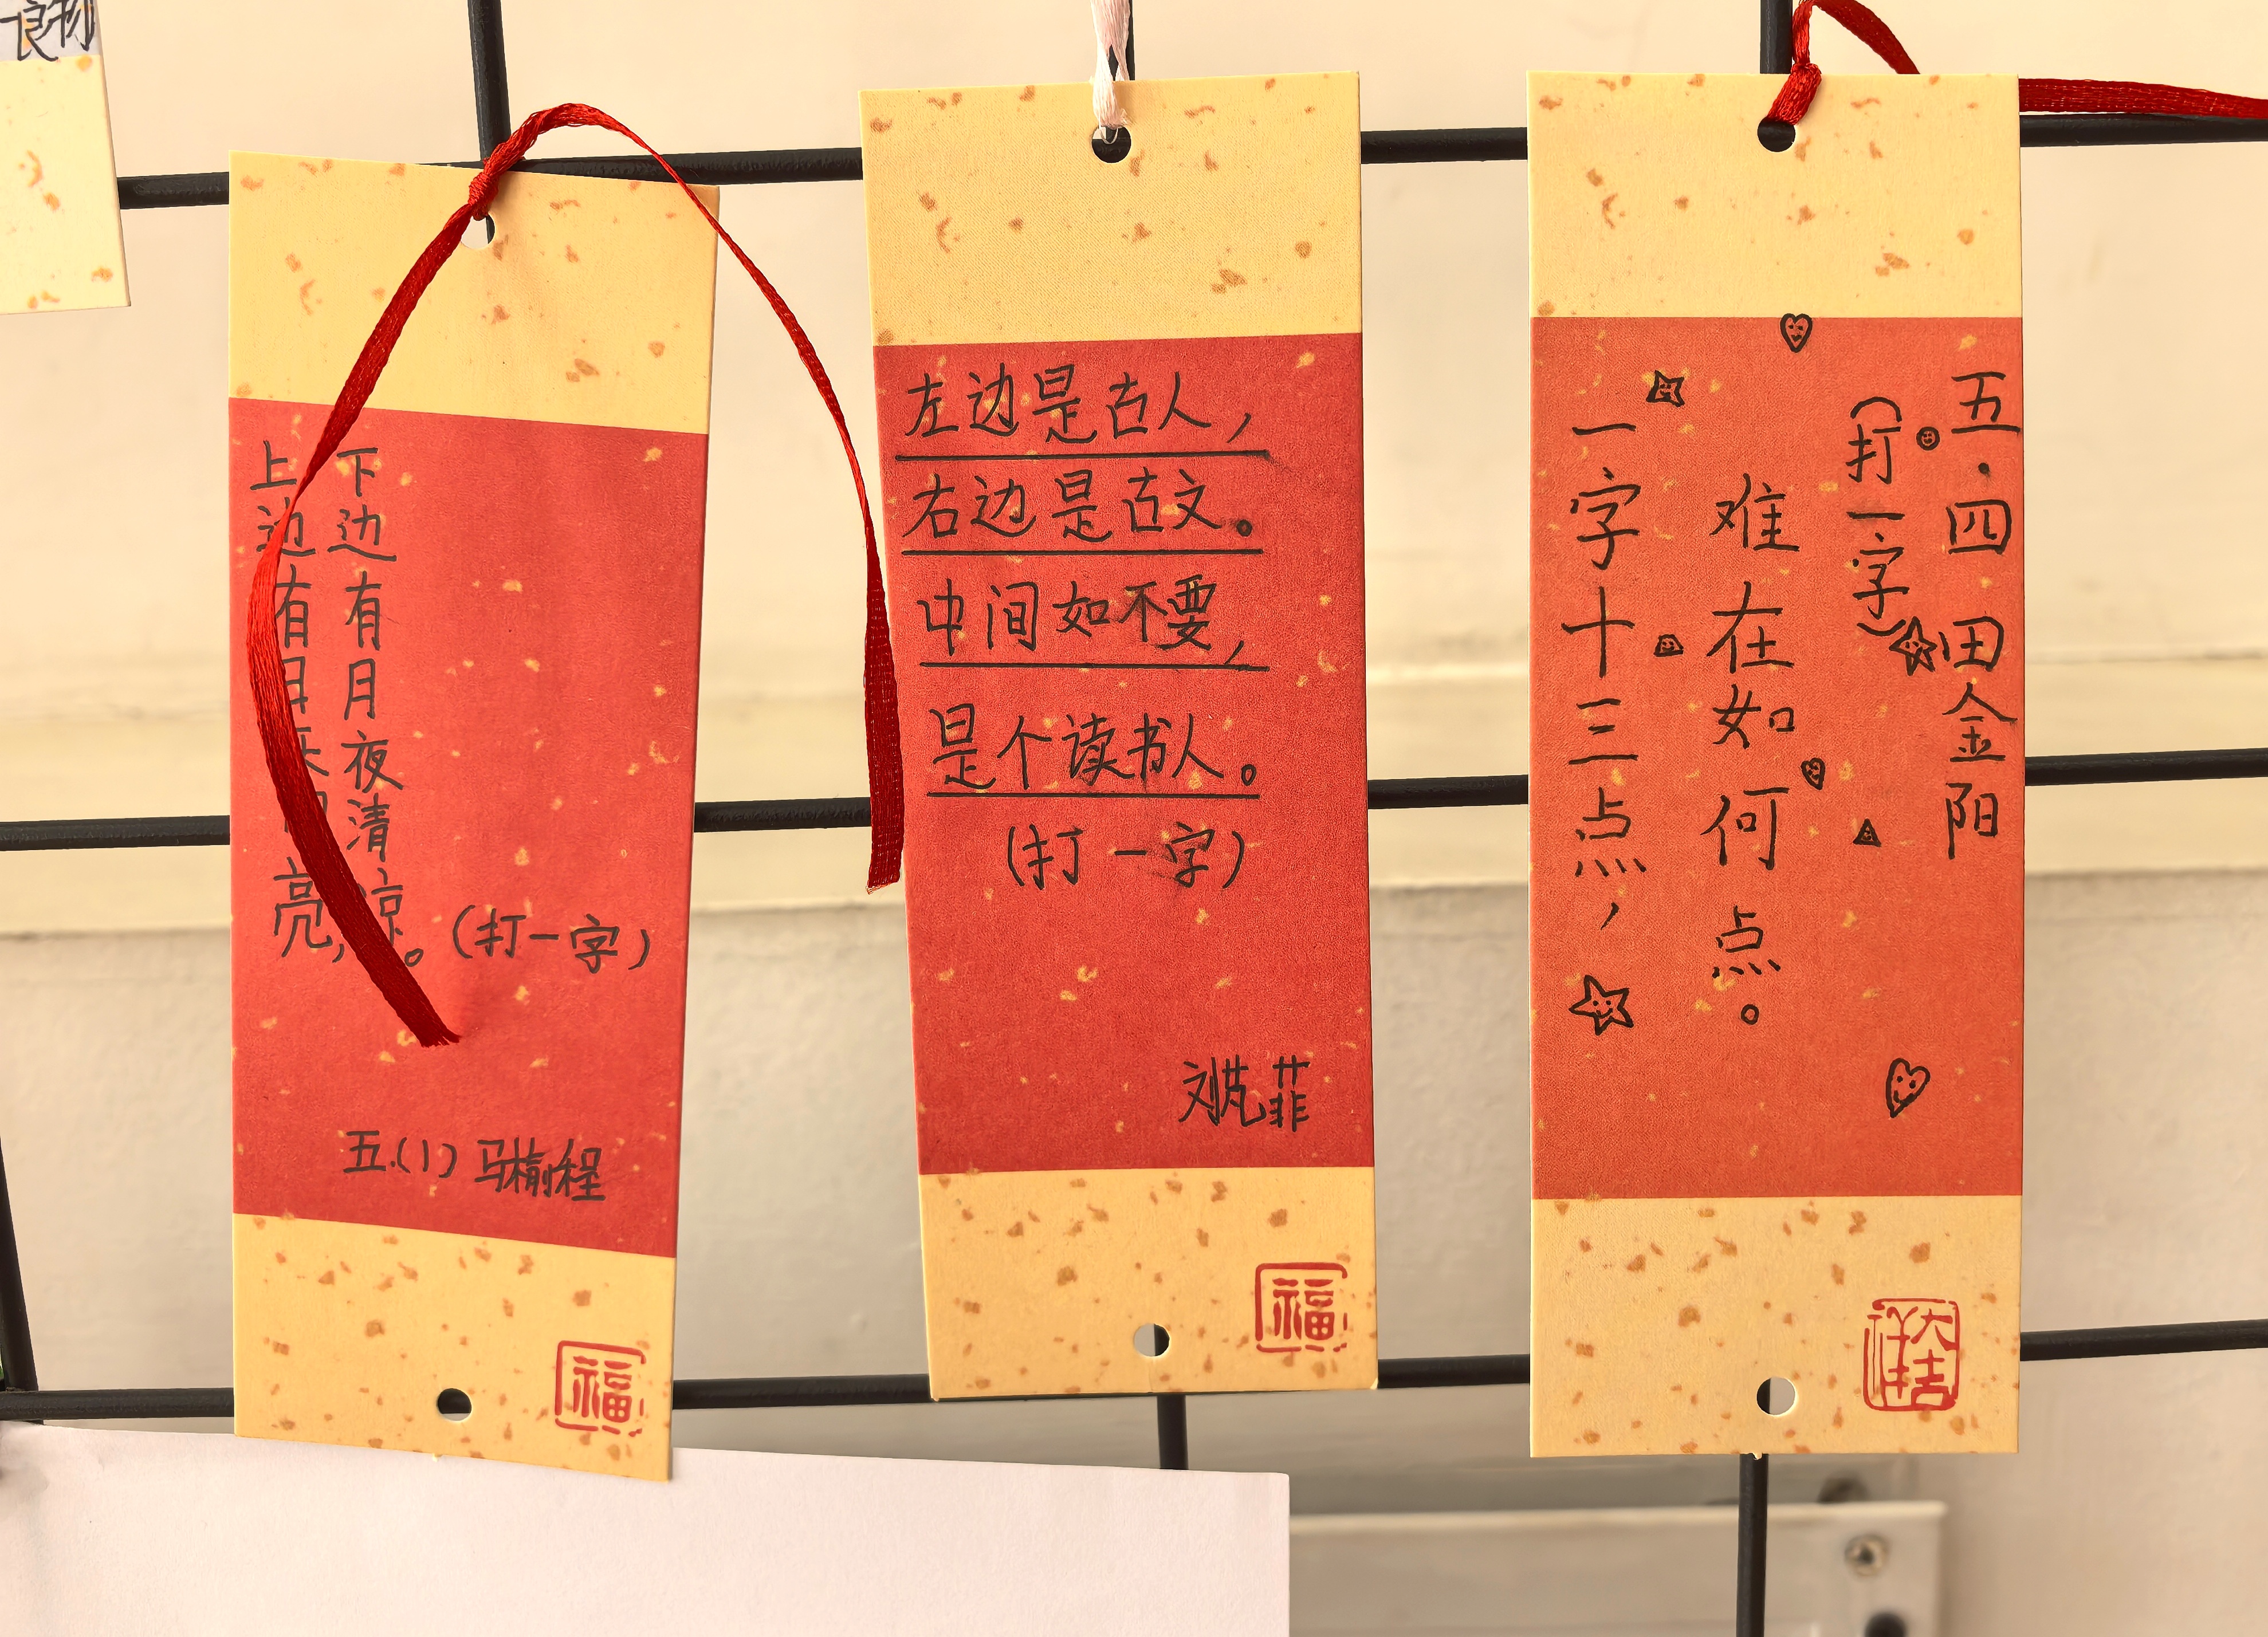 上边有日亮,
下边有月夜清凉。
(打一字)
五.(1) 马榆程
福
左边是古人,
右边是古文。
中间如不要,
是个读书人。
(打一字)
刘芃菲
福
一字十三点,
难在如何点。
(打一字)
五·四 田金阳
大吉祥